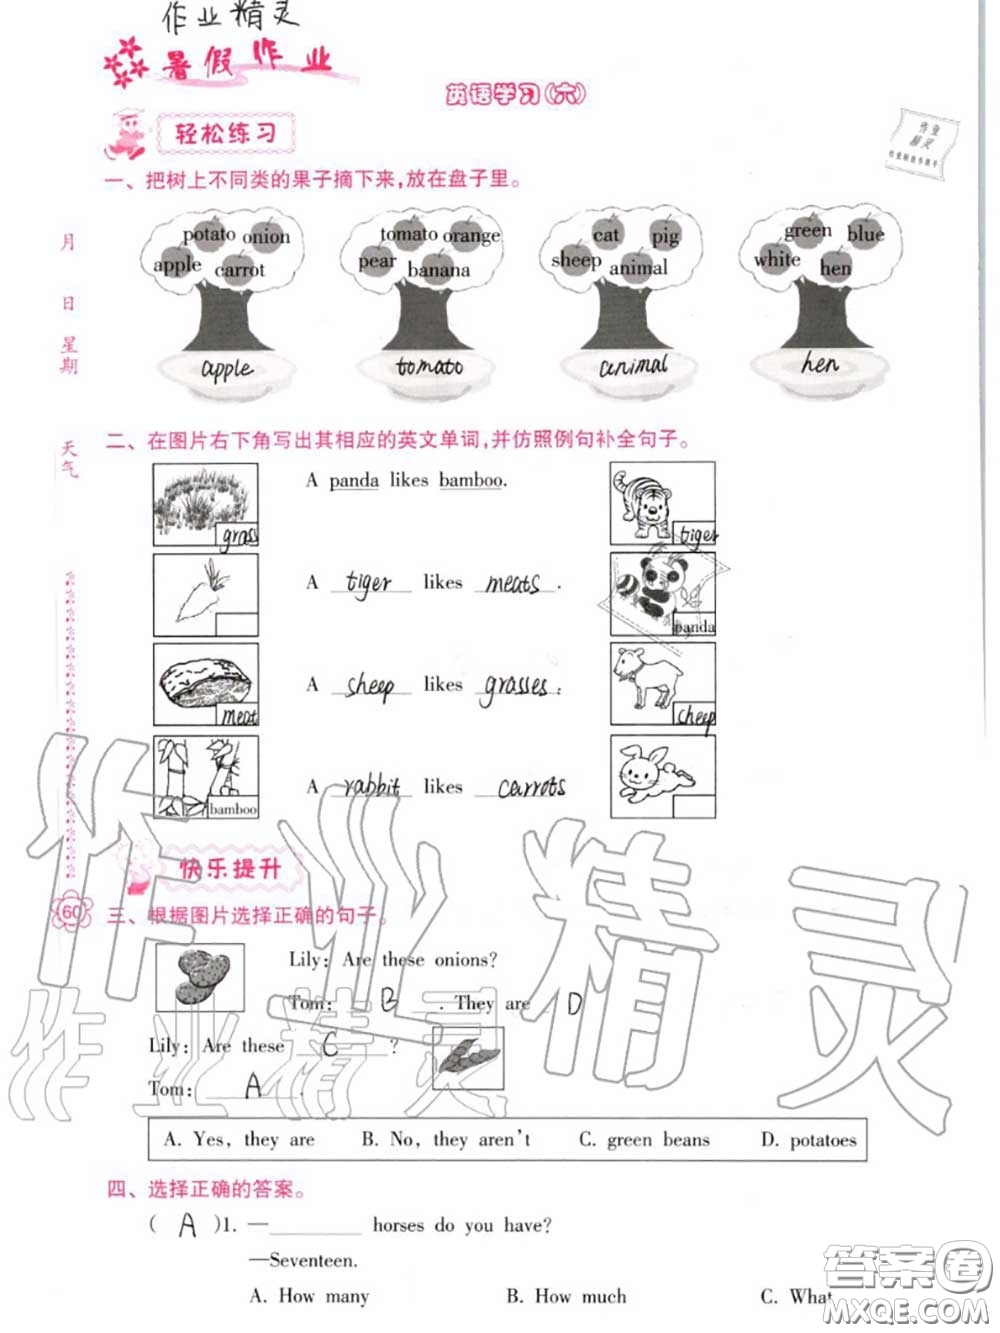 作业精灵
暑假作业
英语学习(六)
轻松练习
作业
精灵
一、把树上不同类的果子摘下来,放在盘子里。
月
日
星期
天气
potato onion
apple carrot
tomato orange
pear banana
cat pig
sheep animal
green blue
white hen
apple
tomato
animal
hen
二、在图片右下角写出其相应的英文单词,并仿照例句补全句子。
grass
A panda likes bamboo.
tiger
A tiger likes meats .
panda
meat
A sheep likes grasses .
sheep
bamboo
A rabbit likes carrots
快乐提升
60
三、根据图片选择正确的句子。
Lily: Are these onions?
Tom: B . They are D
Lily: Are these C ?
Tom: A .
A. Yes, they are B. No, they aren't C. green beans D. potatoes
四、选择正确的答案。
( A )1. —________ horses do you have?
—Seventeen.
A. How many B. How much C. What
作业精灵
作业精灵
答案圈
MXQE.COM